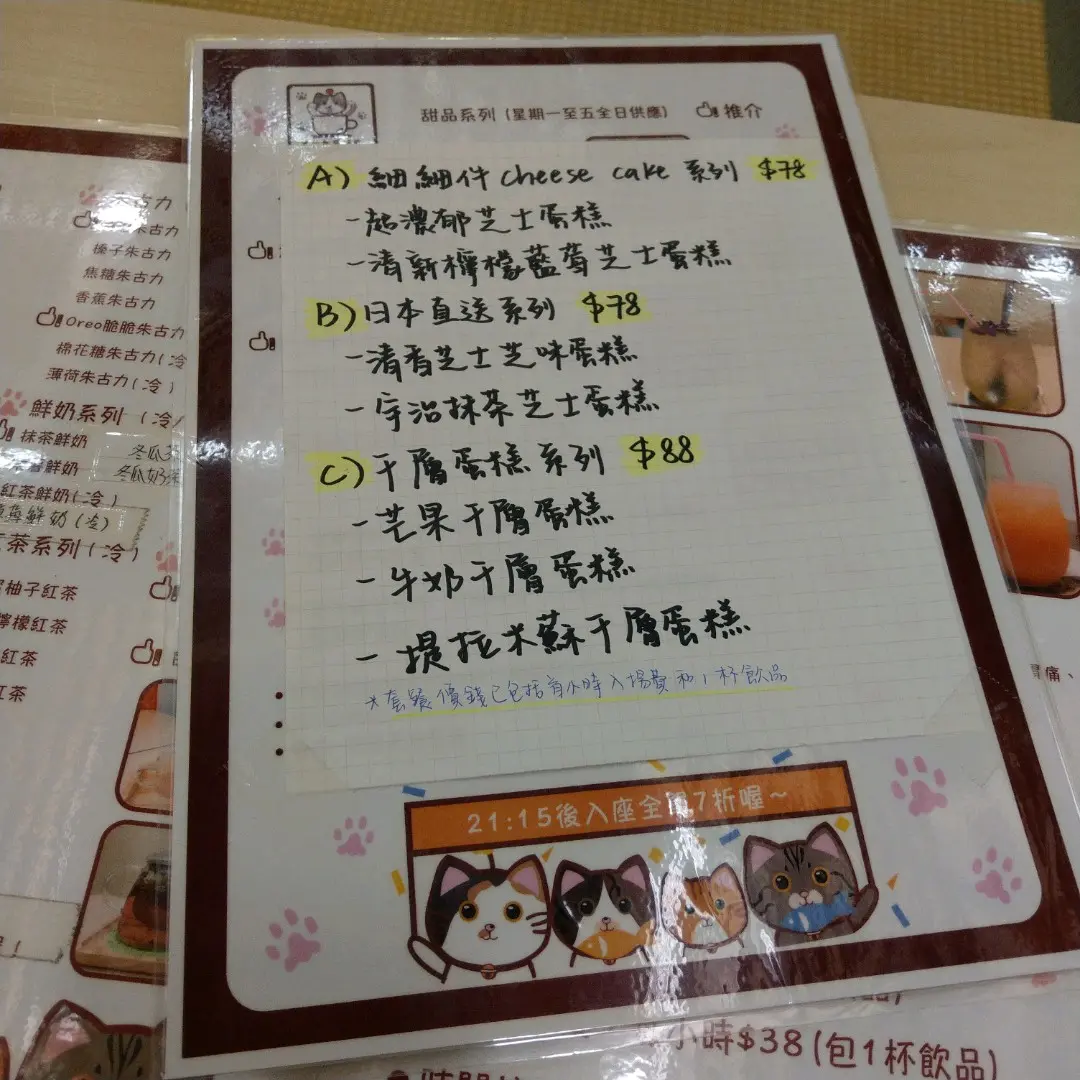 甜品系列 (星期一至五全日供應) 推介
A) 細細件 cheese cake 系列 $78
-超濃郁芝士蛋糕
-清新檸檬藍莓芝士蛋糕
B) 日本直送系列 $78
-清香芝士芝味蛋糕
-宇治抹茶芝士蛋糕
C) 千層蛋糕系列 $88
-芒果千層蛋糕
-牛奶千層蛋糕
-提拉米蘇千層蛋糕
*套餐價錢已包括首小時入場費和1杯飲品
21:15後入座全單7折喔~
小時$38(包1杯飲品)
古力
朱古力
榛子朱古力
焦糖朱古力
香蕉朱古力
Oreo脆脆朱古力
棉花糖朱古力(冷
薄荷朱古力(冷)
鮮奶系列 (冷/
抹茶鮮奶
冬瓜
鮮奶
冬瓜奶茶
紅茶鮮奶(冷)
鮮奶(冷)
茶系列(冷)
柚子紅茶
檸檬紅茶
紅茶
紅茶
痛、